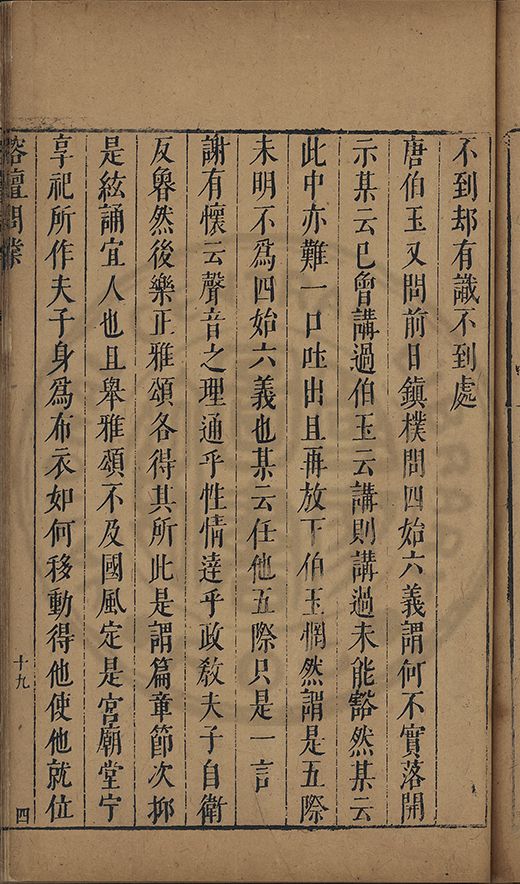 不到却有識不到處
唐伯玉又問前日鎮樸問四始六義謂何不實落開
示某云已曾講過伯玉云講則講過未能豁然某云
此中亦難一口吐出且再放下伯玉惘然謂是五際
未明不爲四始六義也某云任他五際只是一言
謝有懷云聲音之理通乎性情達乎政敎夫子自衛
反魯然後樂正雅頌各得其所此是謂篇章節次抑
是絃誦宜人也且舉雅頌不及國風定是宮廟堂宁
享祀所作夫子身爲布衣如何移動得他使他就位
榕壇問業
十九
四